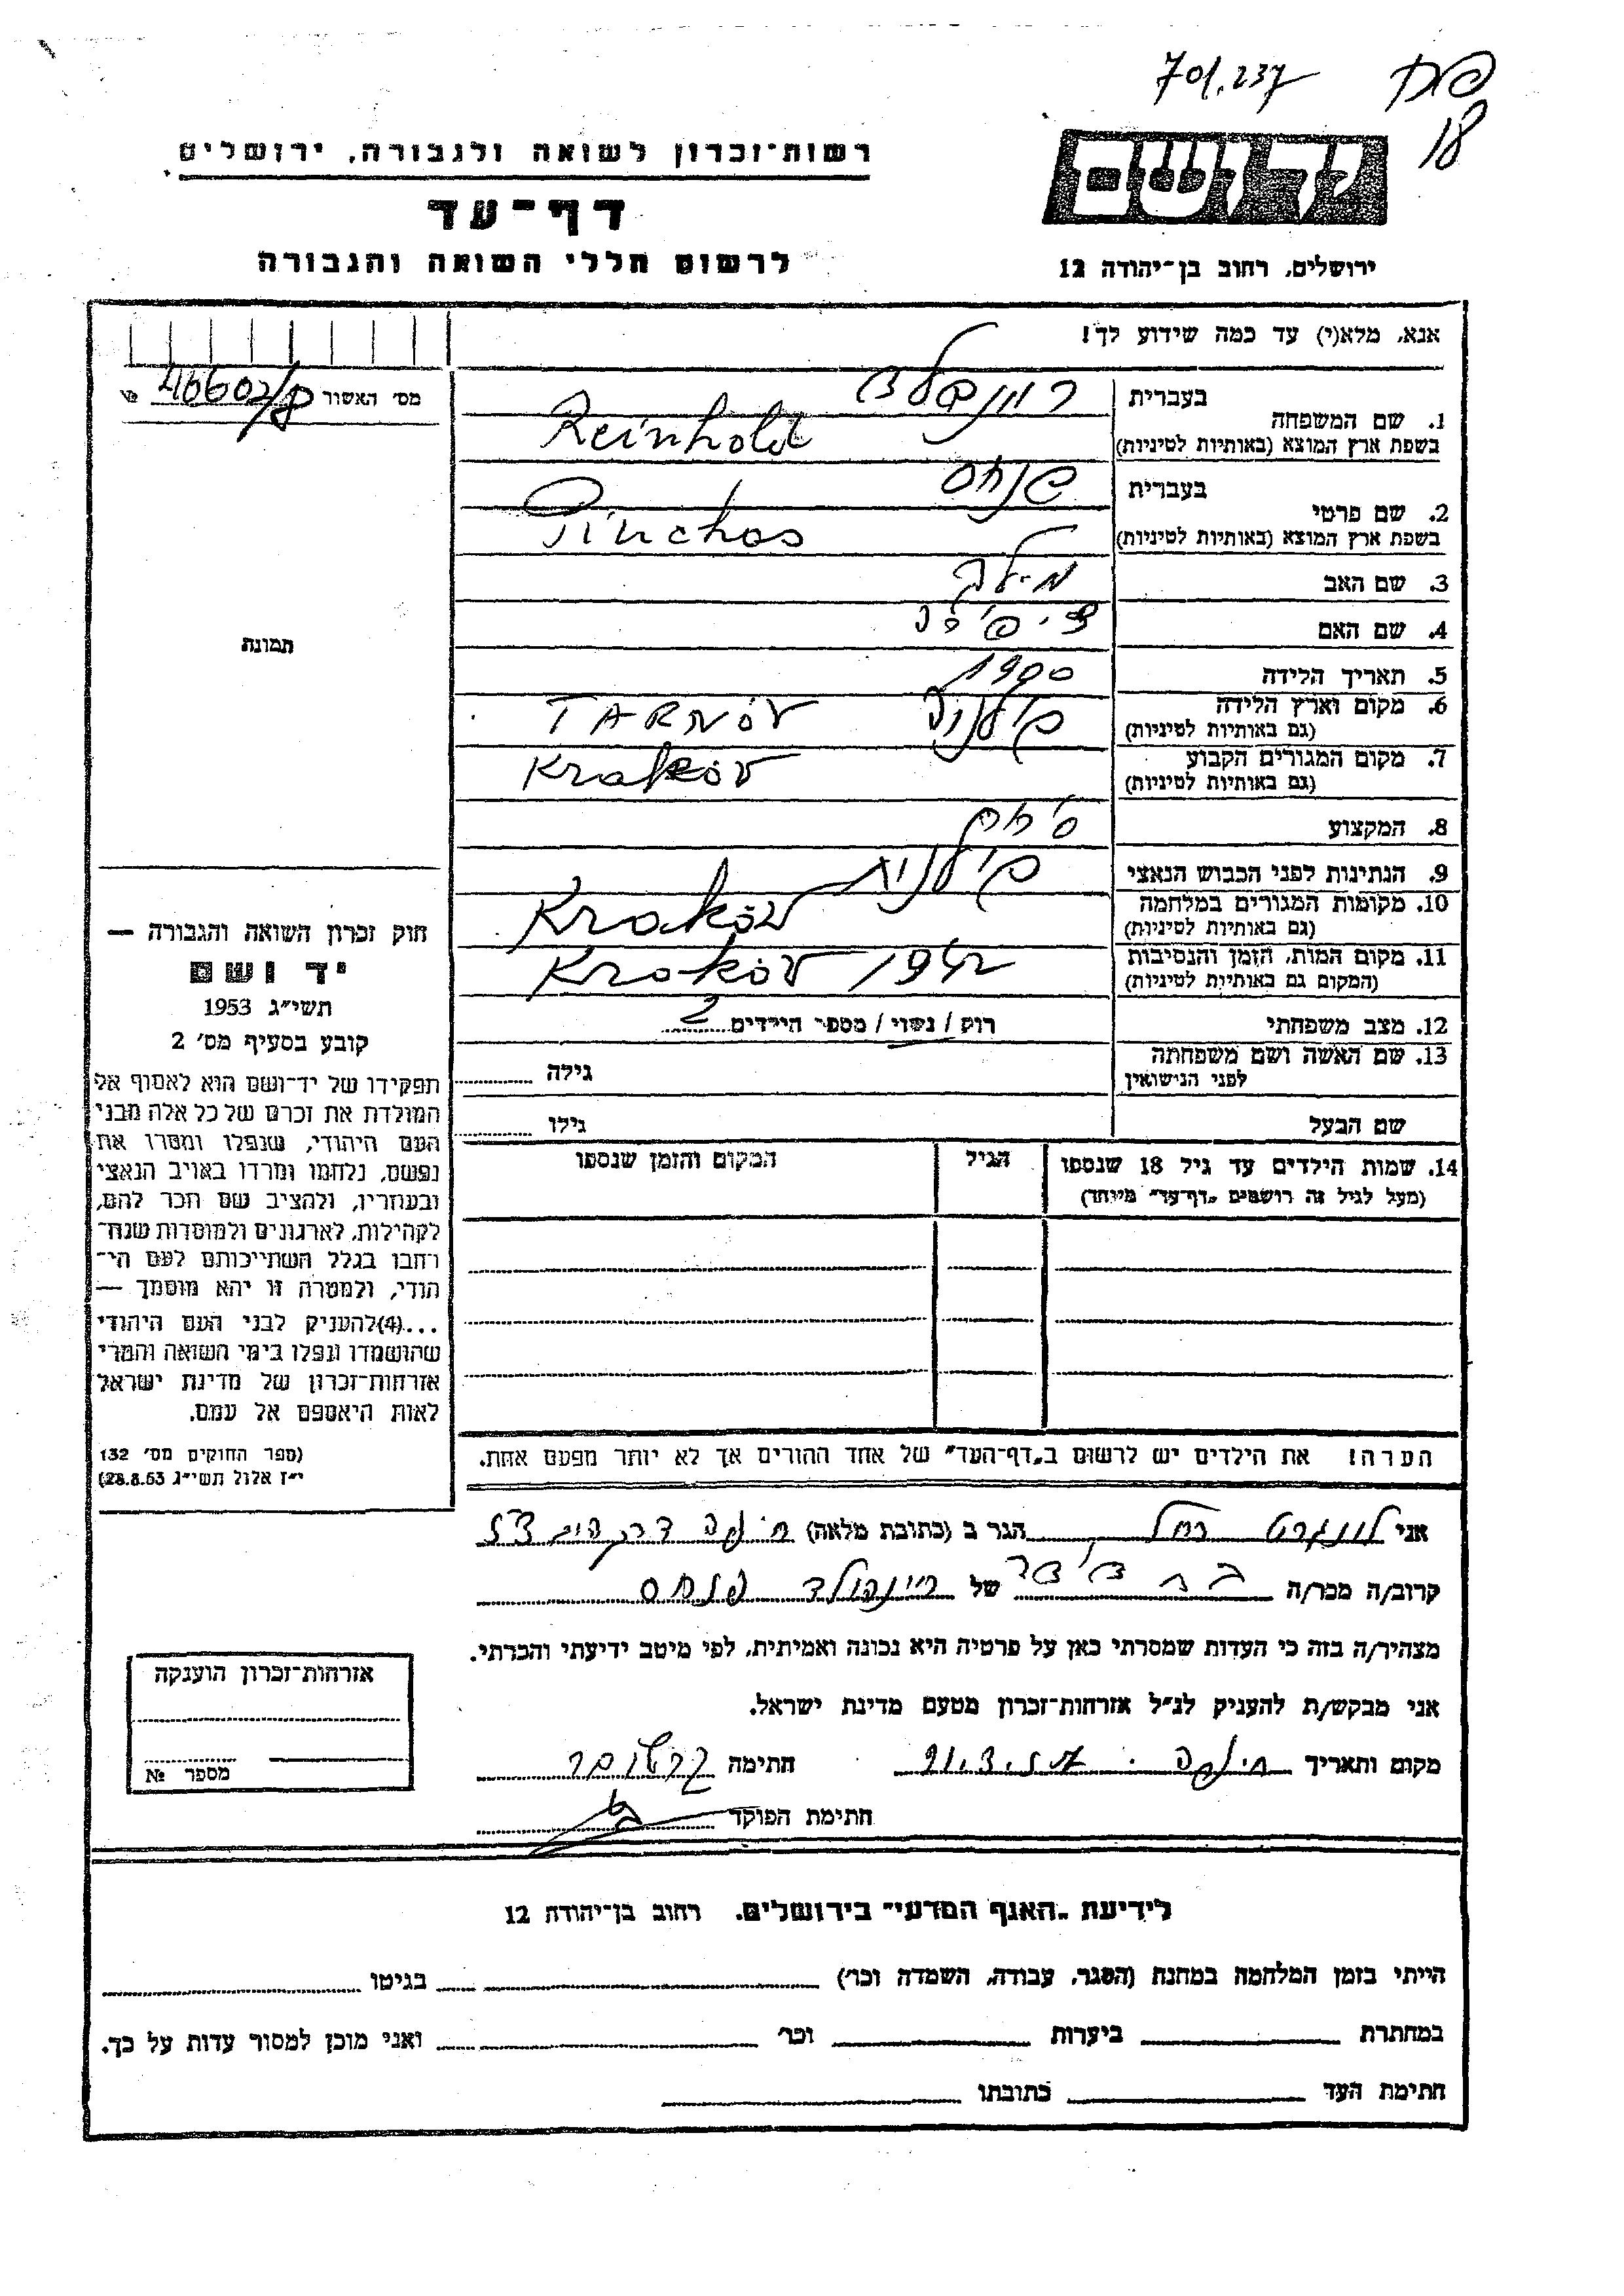 701.237
18
רשות־זכרון לשואה ולגבורה, ירושלים
דף־עד
לרשום חללי השואה והגבורה
יד ושם
ירושלים, רחוב בן־יהודה 12
אנא, מלא(י) עד כמה שידוע לך!
מס' האשור 46602/8 №
1. שם המשפחה
בעברית ריינהולד
בשפת ארץ המוצא (באותיות לטיניות) Reinhold
2. שם פרטי
בעברית פנחס
בשפת ארץ המוצא (באותיות לטיניות) Pinchos
3. שם האב
4. שם האם
5. תאריך הלידה 1900
6. מקום וארץ הלידה פולניה TARNÓV
(גם באותיות לטיניות)
7. מקום המגורים הקבוע Kraköv
(גם באותיות לטיניות)
8. המקצוע סוחר
9. הנתינות לפני הכבוש הנאצי פולנית
10. מקומות המגורים במלחמה Kraków
(גם באותיות לטיניות)
11. מקום המות, הזמן והנסיבות Kraköv 1942
(המקום גם באותיות לטיניות)
12. מצב משפחתי רווק / נשוי / מספר הילדים 2
13. שם האשה ושם משפחתה גילה
לפני הנישואין
שם הבעל גילו
14. שמות הילדים עד גיל 18 שנספו הגיל המקום והזמן שנספו
(מעל לגיל זה רושמים „דף־עד" מיוחד)
הערה! את הילדים יש לרשום ב„דף־העד" של אחד ההורים אך לא יותר מפעם אחת.
תמונה
חוק זכרון השואה והגבורה —
יד ושם
תשי״ג 1953
קובע בסעיף מס' 2
תפקידו של יד־ושם הוא לאסוף אל
המולדת את זכרם של כל אלה מבני
העם היהודי, שנפלו ומסרו את
נפשם, נלחמו ומרדו באויב הנאצי
ובעוזריו, ולהציב שם וזכר להם,
לקהילות, לארגונים ולמוסדות שנח־
רחבו בגלל השתייכותם לעם הי־
הודי, ולמטרה זו יהא מוסמך —
...(4)להעניק לבני העם היהודי
שהושמדו ונפלו בימי השואה והמרי
אזרחות־זכרון של מדינת ישראל
לאות היאספם אל עמם.
(ספר החוקים מס' 132
י״ז אלול תשי״ג 28.8.53)
אני רחל הגר ב (כתובת מלאה) חיפה
קרוב/ה מכר/ה בת דוד של ריינהולד פנחס
מצהיר/ה בזה כי העדות שמסרתי כאן על פרטיה היא נכונה ואמיתית, לפי מיטב ידיעתי והכרתי.
אני מבקש/ת להעניק לנ״ל אזרחות־זכרון מטעם מדינת ישראל.
מקום ותאריך חיפה חתימה
חתימת הפוקד
אזרחות־זכרון הוענקה
מספר №
לידיעת „האגף המדעי" בירושלים. רחוב בן־יהודה 12
הייתי בזמן המלחמה במחנה (הסגר, עבודה, השמדה וכר') בגיטו
במחתרת ביערות וכר' ואני מוכן למסור עדות על כך.
חתימת העד כתובתו